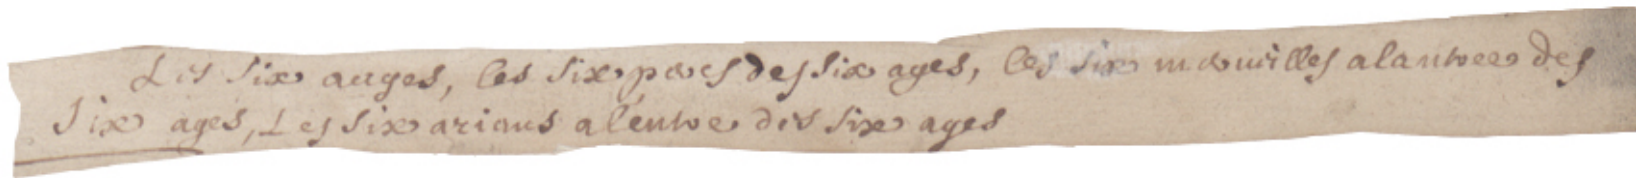 Les six auges, les six paes des six ages, les six mamilles alantree des
six ages, Les six arians alentre des six ages